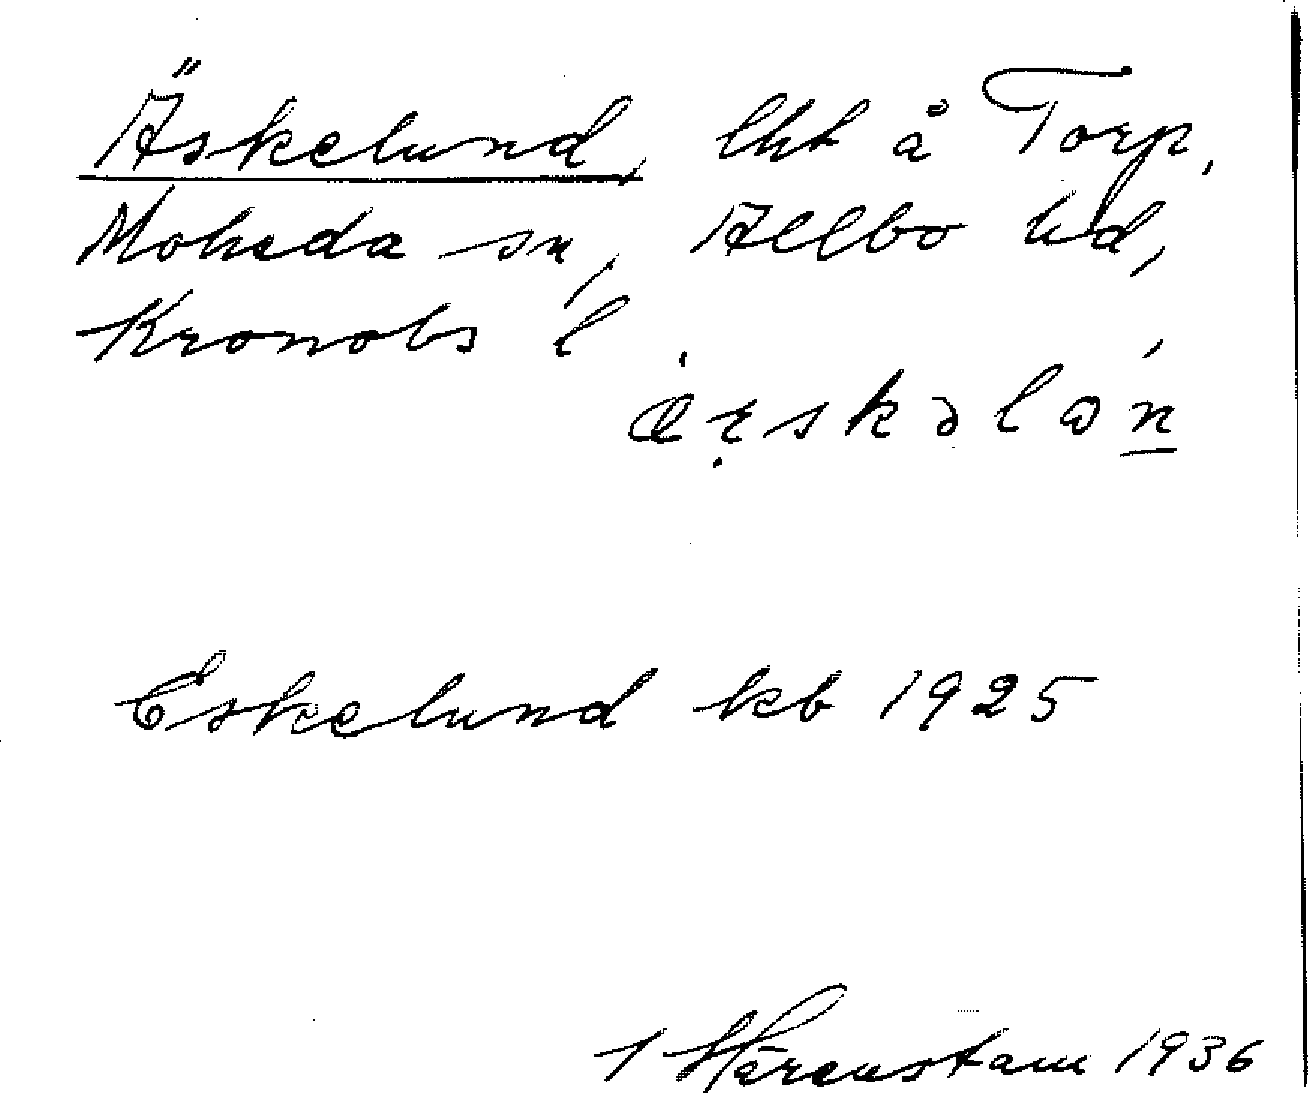 Äskelund, lht å Torp,
Moheda sn, Allbo hd,
Kronobs l
Eskelund kb 1925
Härenstam 1936